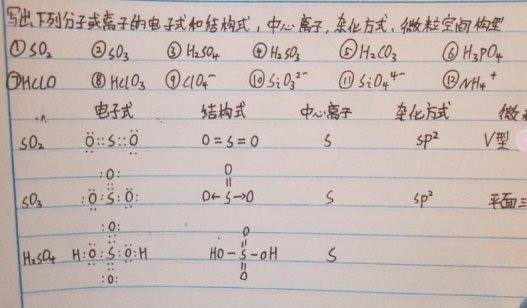 写出下列分子或离子的电子式和结构式,中心离子,杂化方式,微粒空间构型
①SO₂ ②SO₃ ③H₂SO₄ ④H₂SO₃ ⑤H₂CO₃ ⑥H₃PO₄
⑦HClO ⑧HClO₃ ⑨ClO₄⁻ ⑩SiO₃²⁻ ⑪SiO₄⁴⁻ ⑫NH₄⁺
电子式 结构式 中心离子 杂化方式 微
SO₂ Ö::S::Ö O=S=O S sp² V型
:O: O
SO₃ :Ö:S:Ö: O←S→O S sp² 平面三
:O: O
H₂SO₄ H:Ö:S:Ö:H HO-S-OH S
:O: O